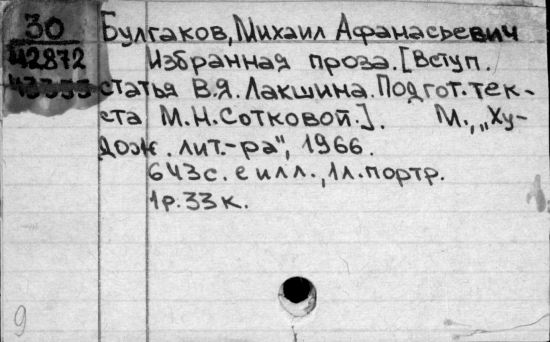 30
Булгаков, Михаил Афанасьевич
42872
Избранная проза. [Вступ.
статья В.Я. Лакшина. Подгот. тек-
ста М.Н. Сотковой.]. М., „Ху-
дож. лит.-ра", 1966.
643с. с илл., 1л. портр.
1р. 33к.
9